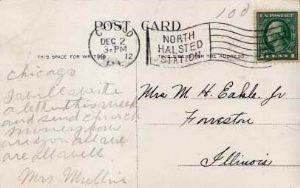 100
POST CARD
CHICAGO
DEC 2
3 PM
12
ILL.
NORTH
HALSTED
STATION
THIS SPACE FOR WRITING
THE ADDRESS
Chicago
I will write
a letter this week
and send church
money how
are you all we
are all well
Mrs Mullin
Mrs M. H. Eakle, Jr
Forreston
Illinois